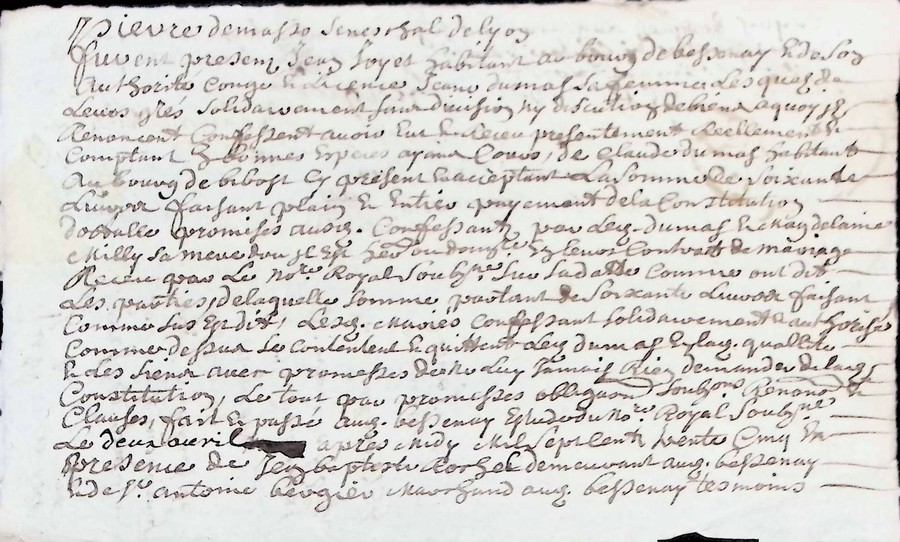 Pierre demasso seneschal de lyon
furent presens Jean Joyet habitant au bourg de bessenay & de son
authorité congé & licence Jeane dumas sa femme lesquels de
leurs grés solidairement sans division ny discution de biens a quoy ils
renoncent confessent avoir eut & receu presentement reellement &
comptant en bonnes especes ayant cours, de Claude dumas habitant
au bourg de bibost cy present & acceptant la somme de soixante
livres faisant plain & entier payement de la constitution
dottalle promises aux. confessants par led. dumas & Magdelaine
Milly sa mere dont il est en leur contract de mariage
receu par le no.re Royal soub.ne sur sa datte comme ont dit
les parties, de laquelle somme partant de soixante livres faisant
comme sus est dit, lesd. mariés confessant solidairement & authorisé
comme dessus se contentent & quittent led. dumas esd. quallité
& les siens avec promesses de ne luy jamais rien demander de lad.
constitution, le tout par promesses obligons soubmons renons &
clauses, fait & passé aud. bessenay estude du no.re Royal soub.ne
le deux avril apres midy mil sept cents trente cinq en
presence de Jean baptiste Rochel demeurant aud. bessenay
& de s.r antoine bergier marchand aud. bessenay tesmoins